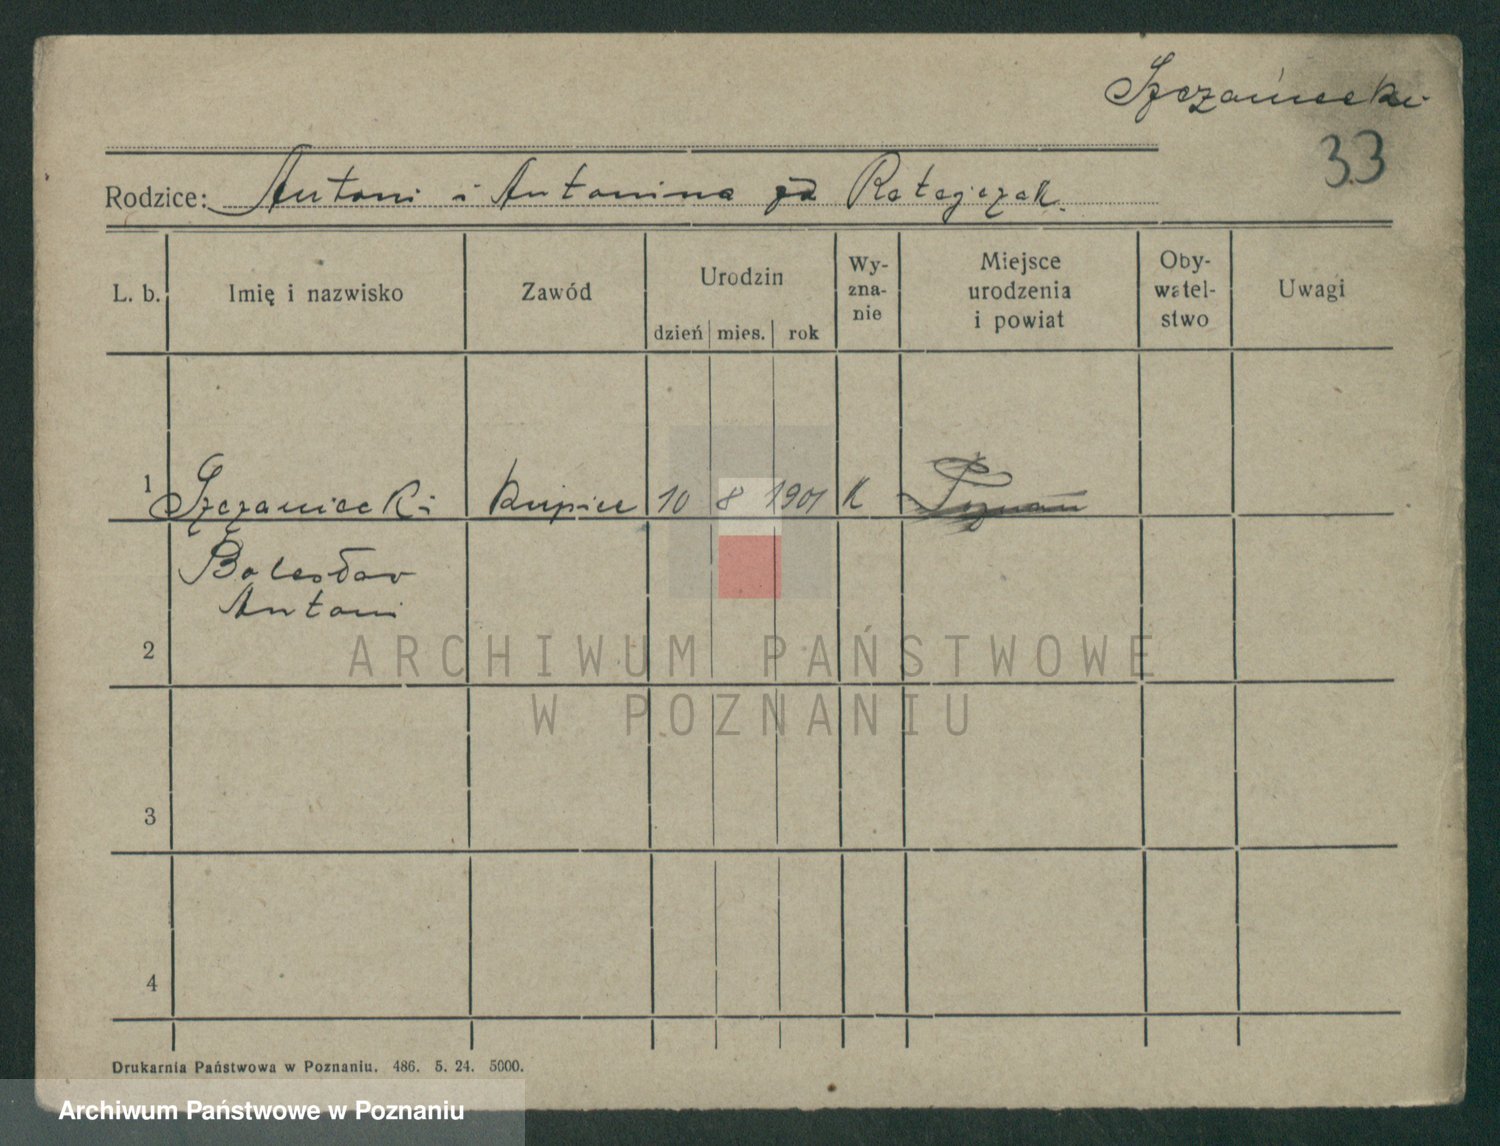 Szczaniecki
33
Rodzice: Antoni i Antonina zd Ratajczak.
L. b. Imię i nazwisko Zawód Urodzin dzień mies. rok Wy-zna-nie Miejsce urodzenia i powiat Oby-watel-stwo Uwagi
1 Szczaniecki kupiec 10 8 1901 K Poznań
Bolesław
Antoni
2
ARCHIWUM PAŃSTWOWE
W POZNANIU
3
4
Drukarnia Państwowa w Poznaniu. 486. 5. 24. 5000.
Archiwum Państwowe w Poznaniu